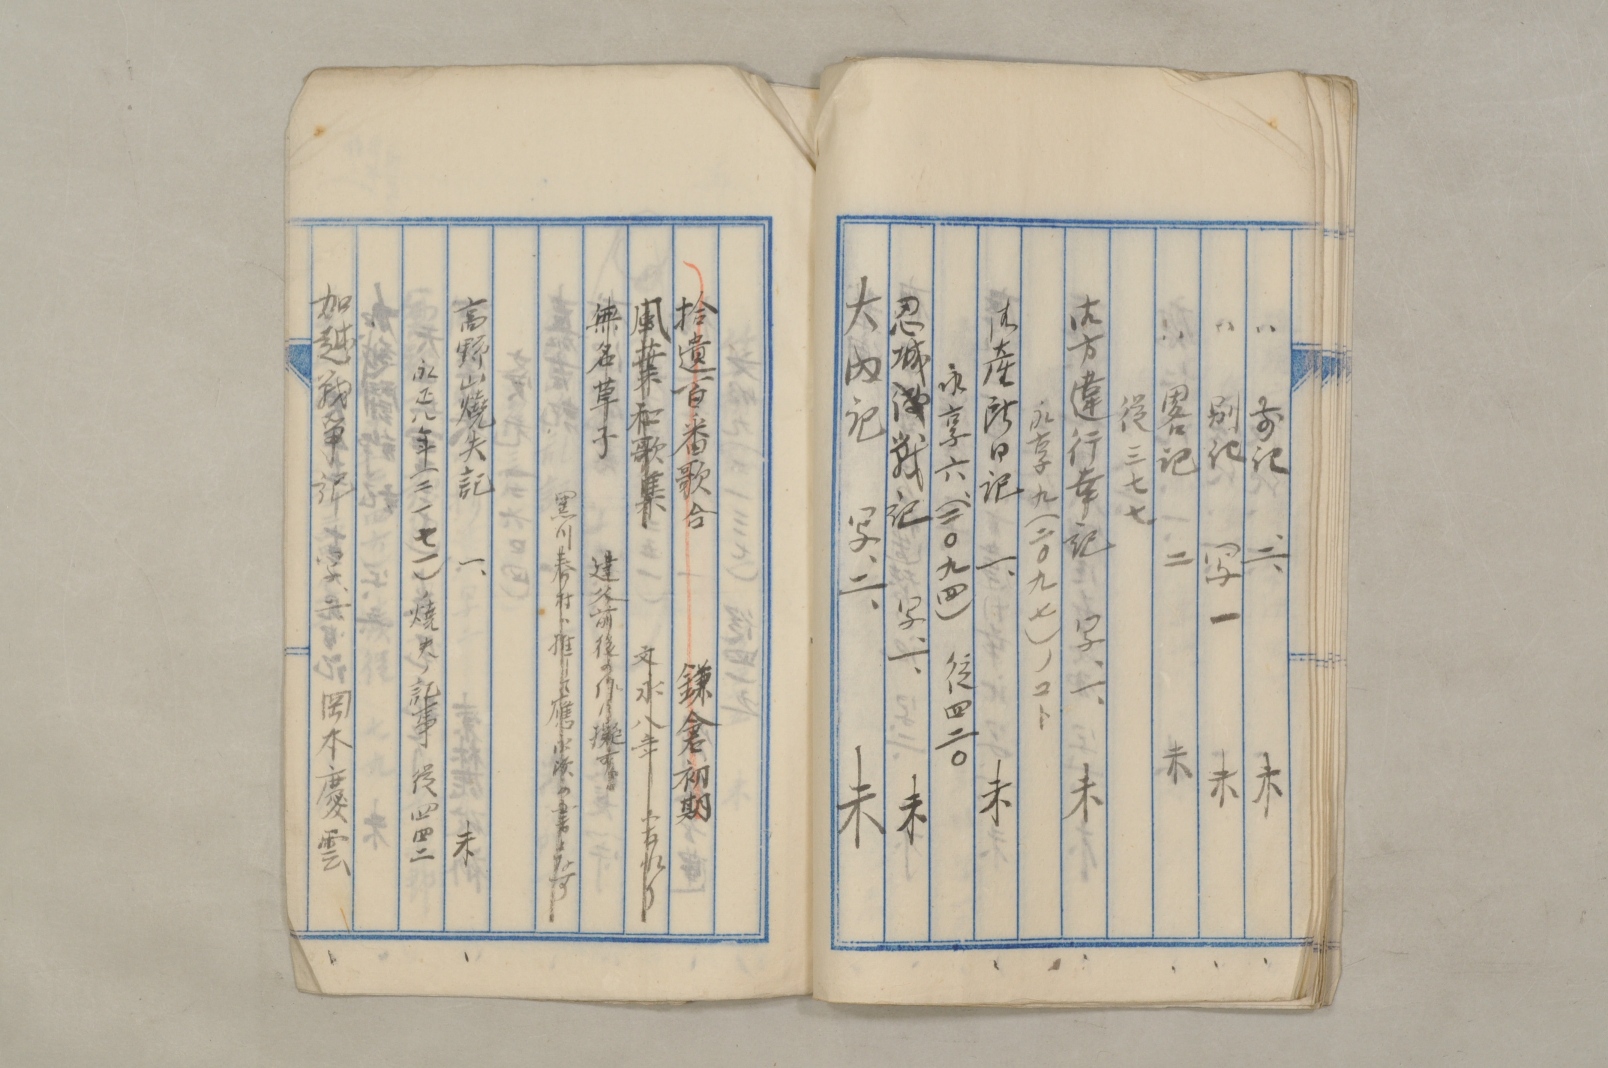 〃 前記 一、 未
〃 別記 写一 未
〃 畧記 二 未
従三七七
御方違行幸記 写、一、 未
永享九(二〇九七)ノコト
御産所日記 一、 未
永享六(二〇九四) 従四二〇
忍城戦記 写、一、 未
大内記 写、二、 未
拾遺百番歌合 鎌倉初期
風葉和歌集 文永八年
無名草子 建久前後の作
黒川春村
高野山焼失記 一、 未
永正八年(二一七一)焼失ノ記事 従四四二
加越戦争記 岡本慶雲